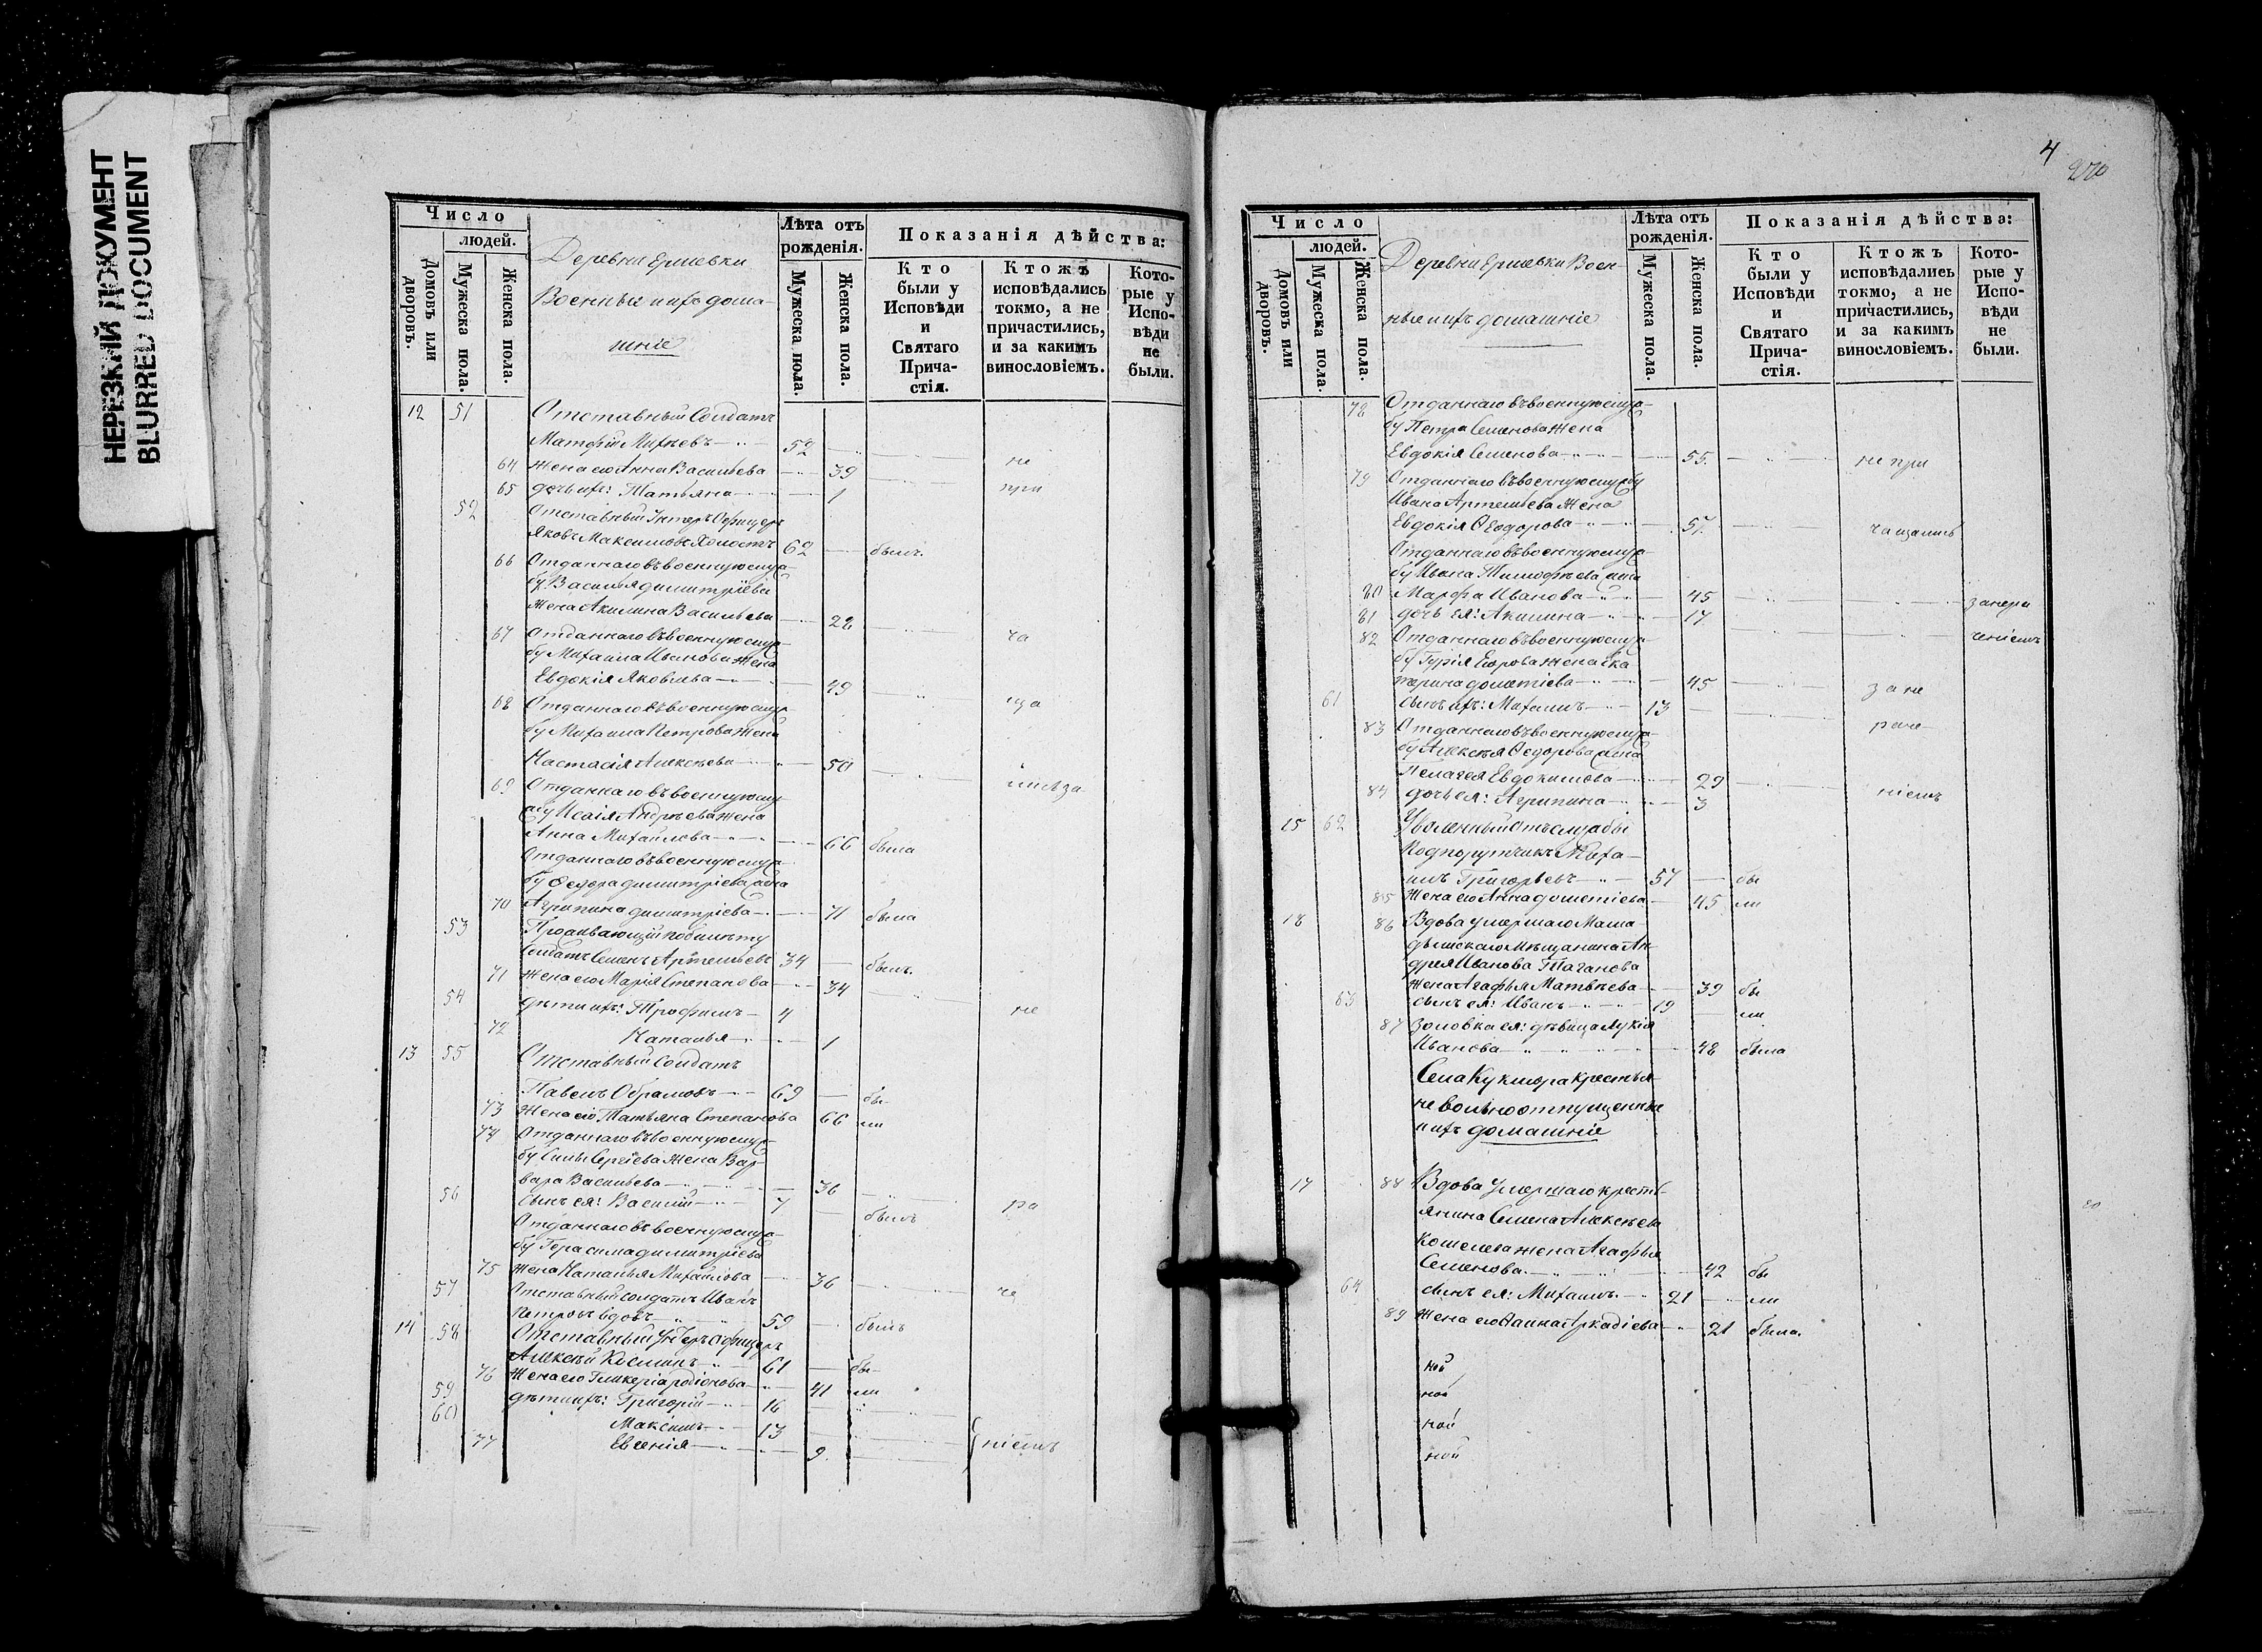 НЕРЕЗКИЙ ДОКУМЕНТ
BLURRED DOCUMENT
Число
людей.
Домовъ или дворовъ.
Мужеска пола.
Женска пола.
Деревни Ершевки
Военные и ихъ дома-
шніе
Лѣта отъ рожденія.
Мужеска пола.
Женска пола.
Показанія дѣйства:
Кто были у Исповѣди и Святаго Прича-стія.
Ктожъ исповѣдались токмо, а не причастились, и за какимъ винословіемъ.
Кото-рые у Испо-вѣди не были.
12 51 Отставный Солдатъ
Матфей Михѣевъ 52
64 жена его Анна Васильева 39 не
65 дочь ихъ: Татьяна 1 при
52 Отставный Унтеръ Офицеръ
Яковъ Максимовъ Холостъ 62 былъ
66 Отданнаго въ военную служ-
бу Василья Димитріева
жена Акилина Васильева 22 ча
67 Отданнаго въ военную служ-
бу Михаила Иванова жена
Евдокія Яковлева 49 ща
68 Отданнаго въ военную служ-
бу Михаила Петрова жена
Настасія Алексѣева 50
69 Отданнаго въ военную слу-
жбу Исаія Андрѣева жена
Анна Михайлова 66 была
Отданнаго въ военную служ-
бу Федора Димитріева жена
70 Агрипина Димитріева 71 была
53 Проживающій по билѣту
Солдатъ Семенъ Артемьевъ 34 былъ
71 жена его Марія Степанова 34
54 дѣти ихъ: Трофимъ 4 не
72 Наталья 1
13 55 Отставный Солдатъ
Павелъ Обрамовъ 69 бы-
73 жена его Татьяна Степанова 66 ли
74 Отданнаго въ военную служ-
бу Силы Сергіева жена Вар-
вара Васильева 36
56 сынъ ея: Василій 7 былъ ра
Отданнаго въ военную служ-
бу Герасима Димитріева
75 жена Наталья Михайлова 36 че
57 Отставный солдатъ Иванъ
Петровъ вдовъ 59 былъ
14 58 Отставный Унтеръ Офицеръ
Алексѣй Косминъ 61 бы-
76 жена его Гликерія Родіонова 41 ли
59 дѣти ихъ: Григорій 16
60 Максимъ 13
77 Евгенія 9 ніемъ
4
270
Число
людей.
Домовъ или дворовъ.
Мужеска пола.
Женска пола.
Деревни Ершевки Воен-
ные и ихъ домашніе
Лѣта отъ рожденія.
Мужеска пола.
Женска пола.
Показанія дѣйства:
Кто были у Исповѣди и Святаго Прича-стія.
Ктожъ исповѣдались токмо, а не причастились, и за какимъ винословіемъ.
Кото-рые у Испо-вѣди не были.
78 Отданнаго въ военную служ-
бу Петра Семенова жена
Евдокія Семенова 55 не при
79 Отданнаго въ военную службу
Ивана Артемьева жена
Евдокія Ѳеодорова 57 чащались
Отданнаго въ военную служ-
бу Ивана Тимофѣева жена
80 Марфа Иванова 45
81 дочь ея: Акилина 17
82 Отданнаго въ военную служ-
бу Гурія Егорова жена Ека
терина Дометіева 45 за не
61 сынъ ихъ: Михаилъ 13
83 Отданнаго въ военную служ-
бу Алексѣя Ѳедорова жена
Пелагея Евдокимова 29 ніемъ
84 дочь ея: Агрипина 3
15 62 Уволенный отъ службы
Подпорутчикъ Миха-
илъ Григорьевъ 57 бы
85 жена его Анна Дометіева 45 ли
18 86 Вдова умершаго Мама-
дышскаго Мѣщанина Ан-
дрея Иванова Таганова
жена Агафья Матвѣева 39 бы
63 сынъ ея: Иванъ 19 ли
87 золовка ея: дѣвица Лукія
Иванова 48 была
Села Кукмора Крестья-
не вольноотпущенные
и ихъ домашніе
17 88 Вдова умершаго крестья-
янина Семена Алексѣева
Кошелева жена Агафья
Семенова 42 бы
64 сынъ ея: Михаилъ 21 ли
89 жена его Анна Аркадіева 21 была.
ной
ной
ной
ной